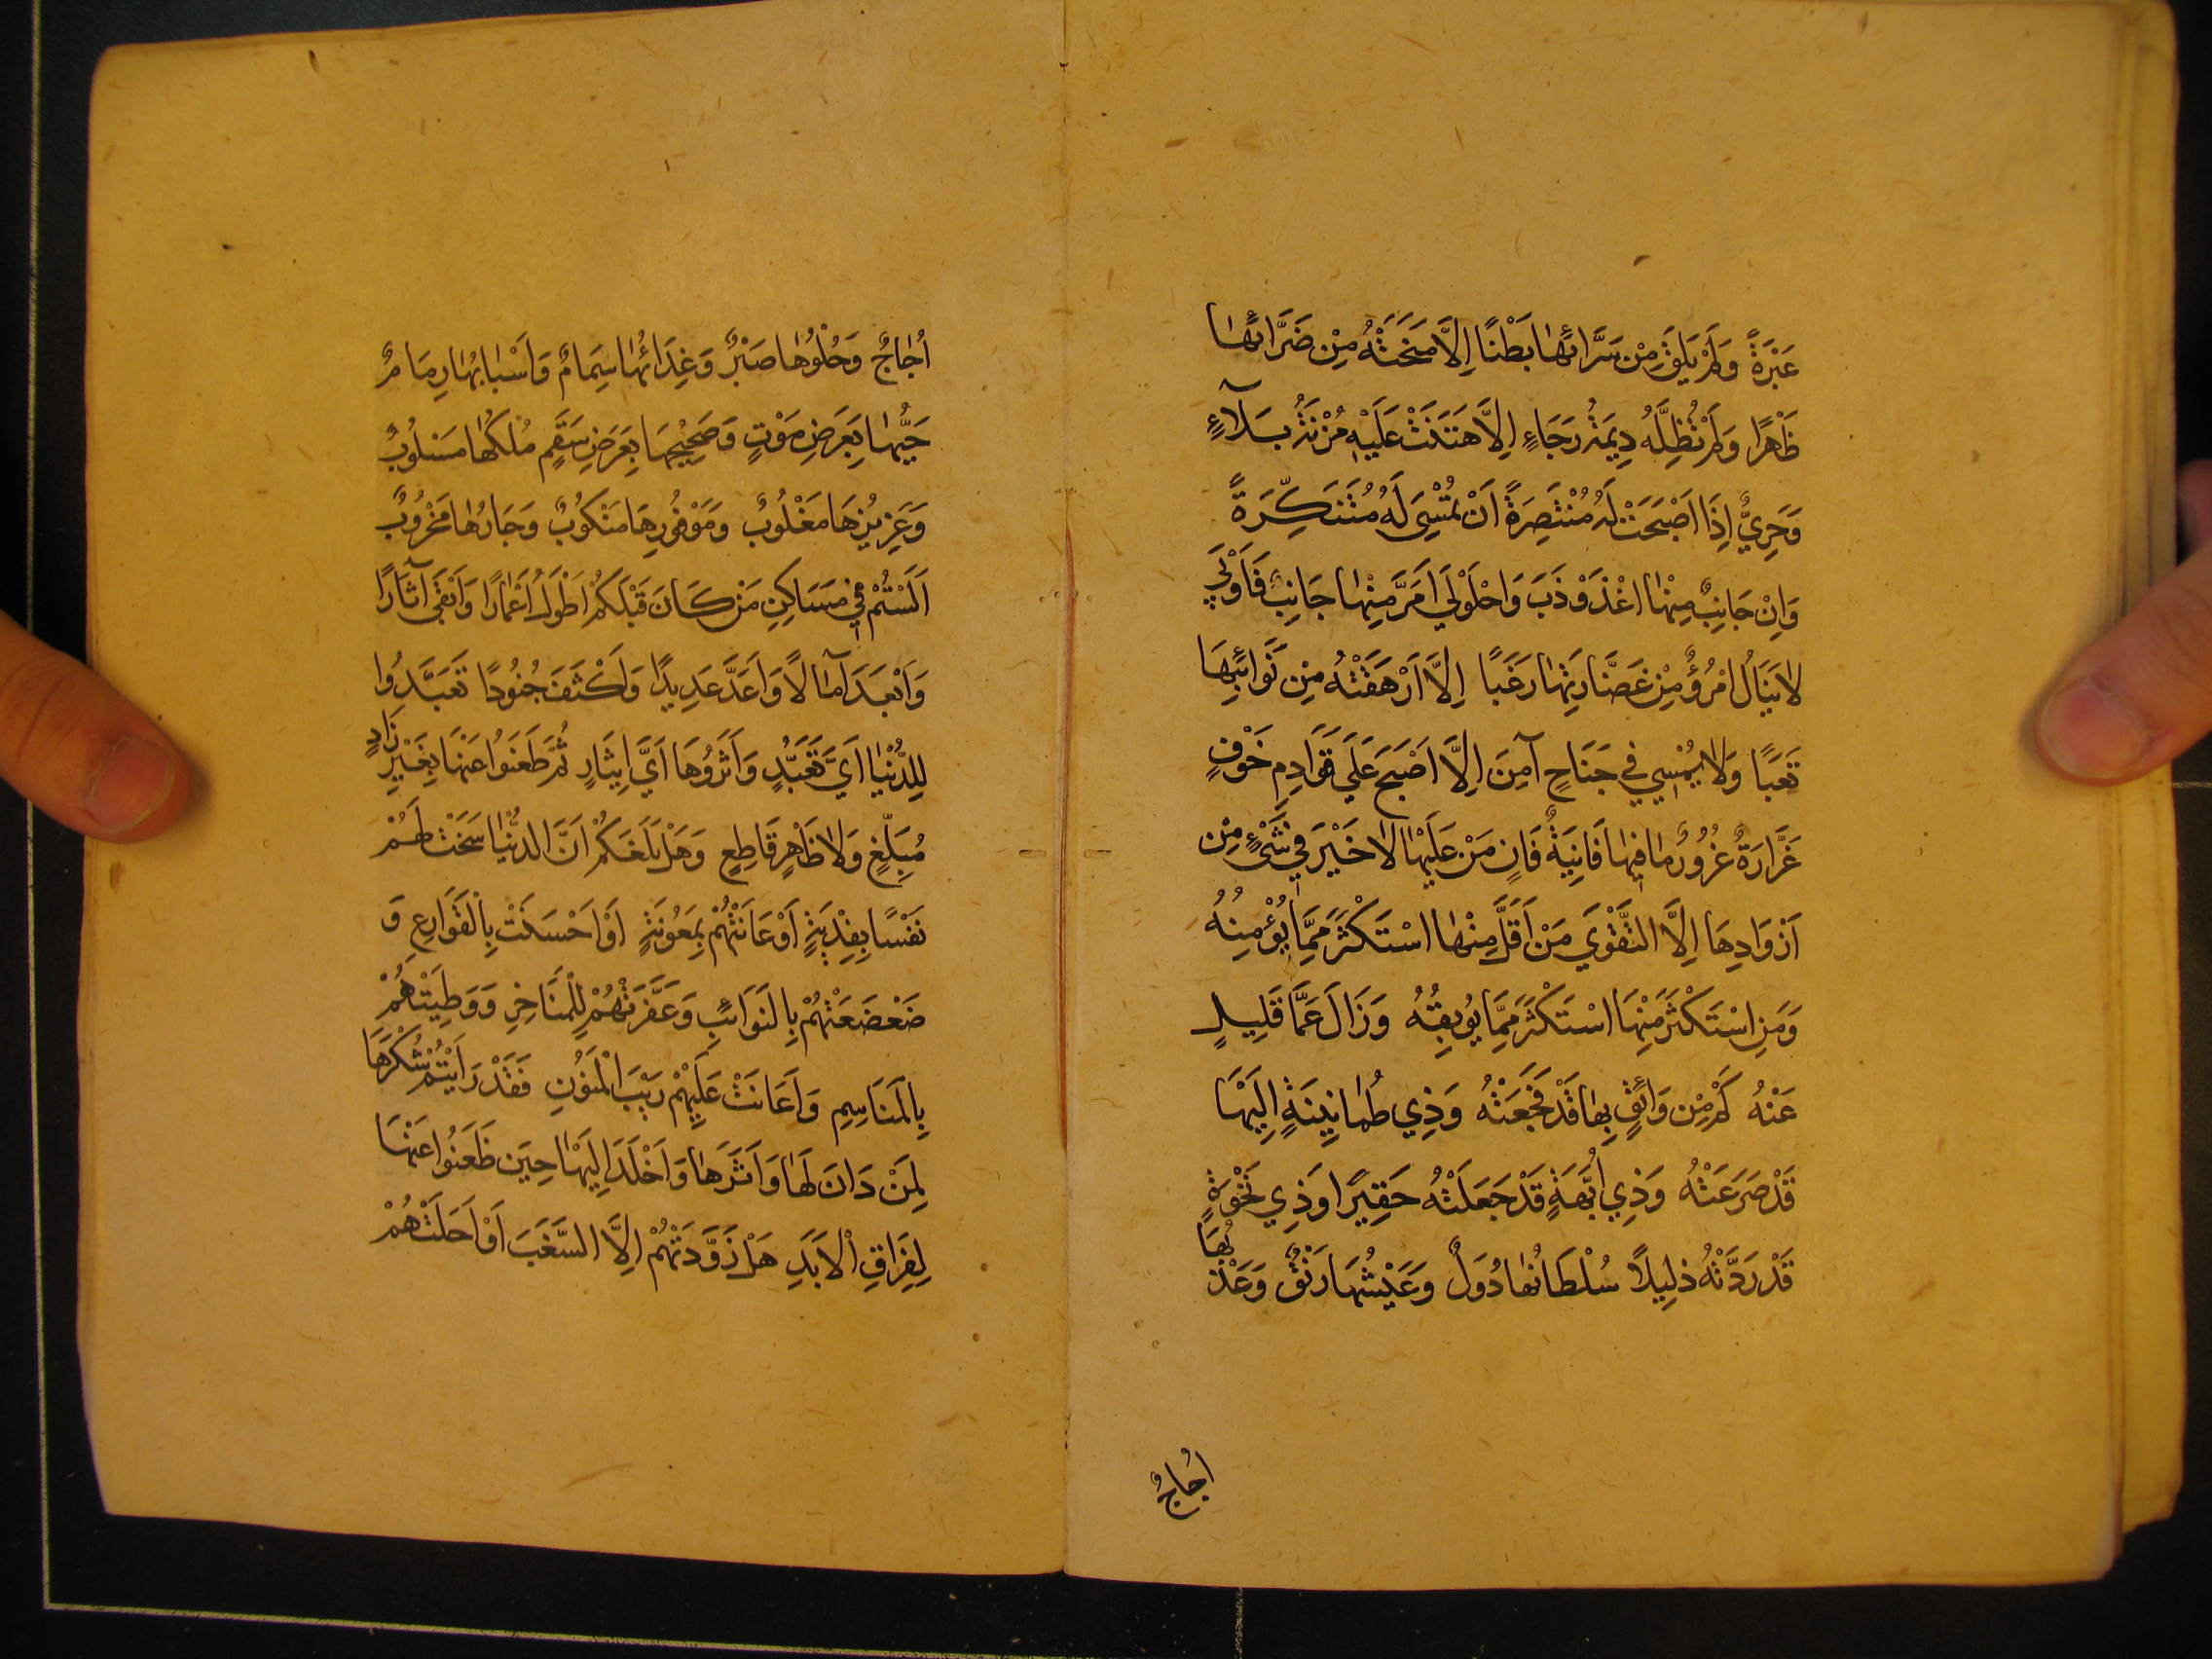 عَبْرَةً وَلَمْ يَلْقَ مِنْ سَرَّائِهَا بَطْنًا اِلَّا مَنَحَتْهُ مِنْ ضَرَّائِهَا
ظَهْرًا وَلَمْ تُظِلَّهُ دِيمَةُ رَجَاءٍ اِلَّا هَتَنَتْ عَلَيْهِ مُزْنَةُ بَلَآءٍ
وَحَرِيٌّ اِذَا اَصْبَحَتْ لَهُ مُنْتَصِرَةً اَنْ تُمْسِيَ لَهُ مُتَنَكِّرَةً
وَاِنْ جَانِبٌ مِنْهَا اعْذَوْذَبَ وَاحْلَوْلَي اَمَرَّ مِنْهَا جَانِبٌ فَاَوْلَي
لَا يَنَالُ امْرُؤٌ مِنْ غَضَارَتِهَا رَغَبًا اِلَّا اَرْهَقَتْهُ مِنْ نَوَائِبِهَا
تَعَبًا وَلَا يُمْسِي فِي جَنَاحِ آمِنَ اِلَّا اَصْبَحَ عَلَي قَوَادِمِ خَوْفٍ
غَرَّارَةٌ غُرُورٌ مَا فِيهَا فَانِيَةٌ فَانٍ مَنْ عَلَيْهَا لَا خَيْرَ فِي شَيْءٍ مِنْ
اَزْوَادِهَا اِلَّا التَّقْوَي مَنْ اَقَلَّ مِنْهَا اسْتَكْثَرَ مِمَّا يُؤْمِنُهُ
وَمَنِ اسْتَكْثَرَ مِنْهَا اسْتَكْثَرَ مِمَّا يُوبِقُهُ وَزَالَ عَمَّا قَلِيلٍ
عَنْهُ كَمْ مِنْ وَاثِقٍ بِهَا قَدْ فَجَعَتْهُ وَذِي طُمَانِينَةٍ اِلَيْهَا
قَدْ صَرَعَتْهُ وَذِي اُبَّهَةٍ قَدْ جَعَلَتْهُ حَقِيرًا وَذِي نَخْوَةٍ
قَدْ رَدَّتْهُ ذَلِيلًا سُلْطَانُهَا دُوَلٌ وَعَيْشُهَا رَنْقٌ وَعَذْبُهَا
اُجَاجٌ
اُجَاجٌ وَحُلْوُهَا صَبْرٌ وَغِذَائُهَا سِمَامٌ وَاَسْبَابُهَا رِمَامٌ
حَيُّهَا بِعَرَضِ مَوْتٍ وَصَحِيْحُهَا بِعَرَضِ سَقَمٍ مُلْكُهَا مَسْلُوبٌ
وَعَزِيزُهَا مَغْلُوبٌ وَمَوْفُورُهَا مَنْكُوبٌ وَجَارُهَا مَحْرُوبٌ
اَلَسْتُمْ فِي مَسَاكِنِ مَنْ كَانَ قَبْلَكُمْ اَطْوَلَ اَعْمَارًا وَاَبْقَي آثَارًا
وَاَبْعَدَ آمَالًا وَاَعَدَّ عَدِيدًا وَاَكْثَفَ جُنُودًا تَعَبَّدُوا
لِلدُّنْيَا اَيَّ تَعَبُّدٍ وَاَثَرُوهَا اَيَّ اِيثَارٍ ثُمَّ ظَعَنَوُا عَنْهَا بِغَيْرِ زَادٍ
مُبَلِّغٍ وَلَا ظَهْرٍ قَاطِعٍ وَهَلْ بَلَغَكُمْ اَنَّ الدُّنْيَا سَخَتْ لَهُمْ
نَفْسًا بِفِدْيَةٍ اَوْ عَانَتْهُمْ بِمَعُونَةٍ اَوْ اَحْسَنَتْ بِالْقَوَارِعِ وَ
ضَعْضَعَتْهُمْ بِالنَوَائِبِ وَعَفَّرَتْهُمْ لِلْمَنَاخِرِ وَوَطِيَتْهُمْ
بِالْمَنَاسِمِ وَاَعَانَتْ عَلَيْهِمْ رَيْبَ الْمَنُونِ فَقَدْ رَاَيْتُمْ تَنَكُّرَهَا
لِمَنْ دَانَ لَهَا وَاَثَرَهَا وَاَخْلَدَ اِلَيْهَا حِينَ ظَعَنُوا عَنْهَا
لِفِرَاقِ الْاَبَدِ هَلْ زَوَّدَتْهُمْ اِلَّا السَّغَبَ اَوْ اَحَلَتْهُمْ